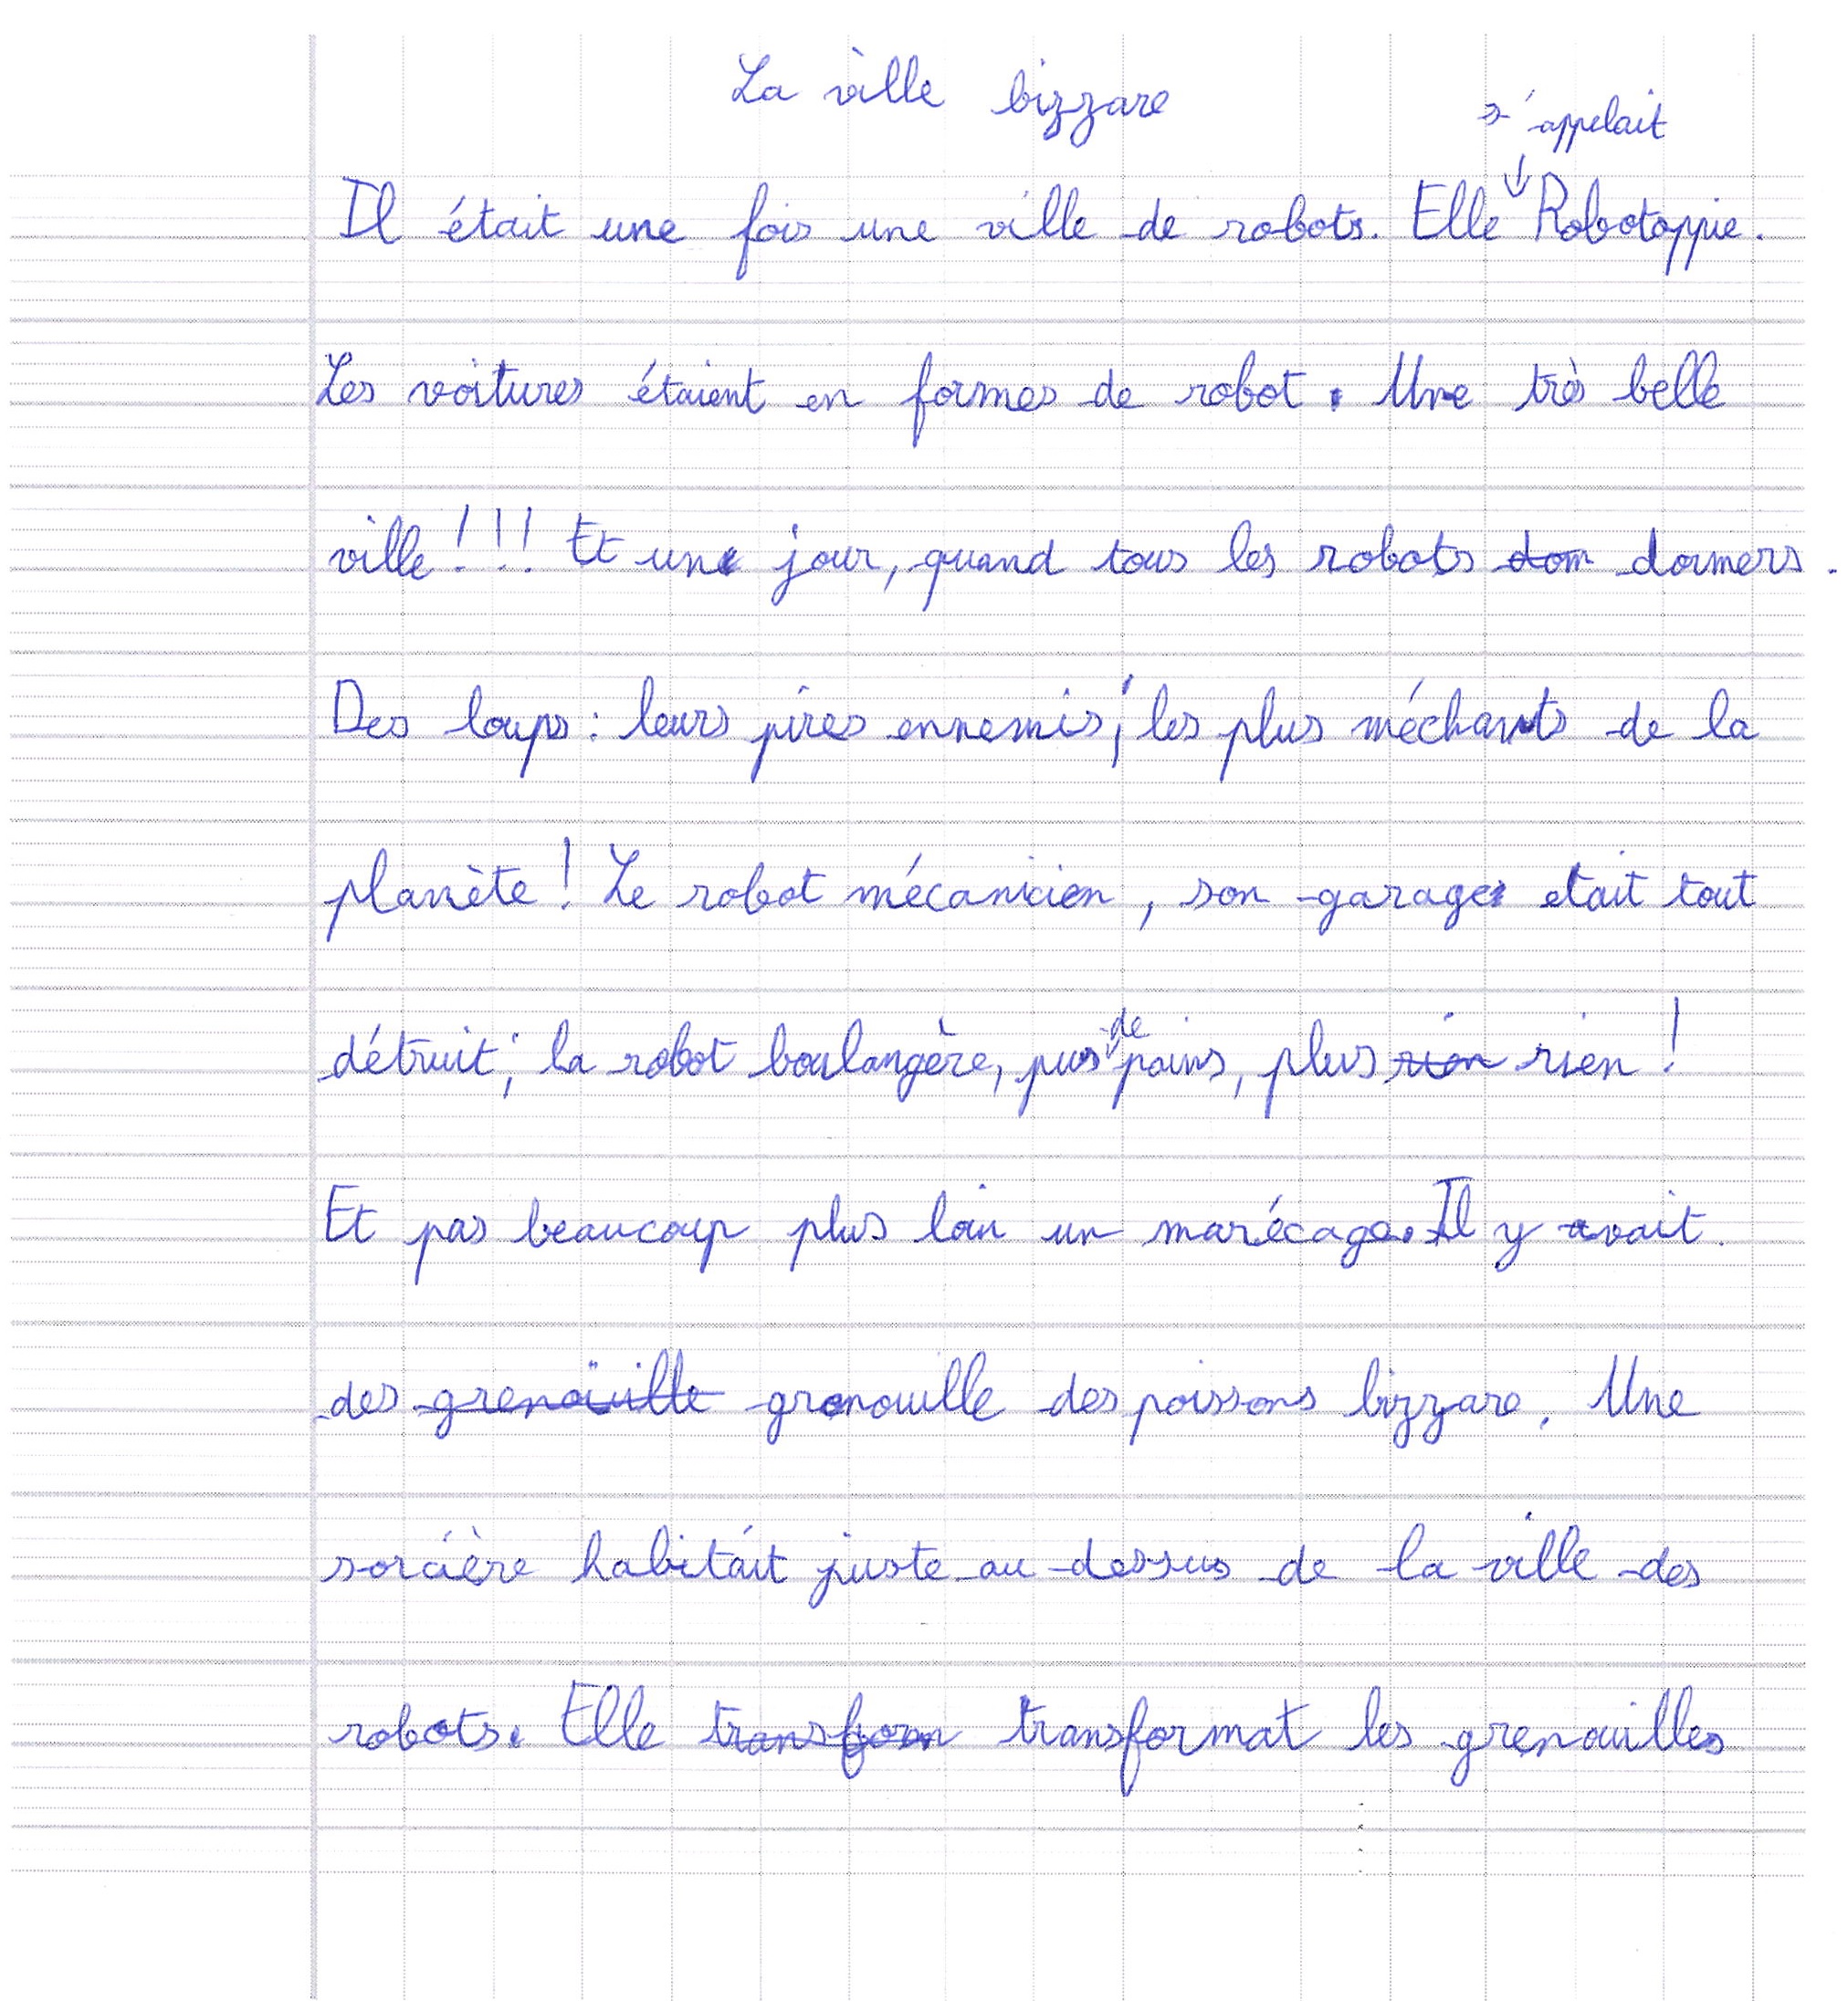 La ville bizzare
s'appelait
Il était une fois une ville de robots. Elle Robotoppie.
Les voitures étaient en formes de robot. Une très belle
ville!!! Et un jour, quand tous les robots dom dormers.
Des loups : leurs pires ennemis; les plus méchants de la
planète! Le robot mécanicien, son garage etait tout
détruit; la robot boulangère, pus de pains, plus rien rien!
Et pas beaucoup plus loin un marécage. Il y avait.
des grenouille grenouille des poissons bizzare. Une
sorcière habitait juste au-dessus de la ville des
robots. Elle transform transformat les grenouilles